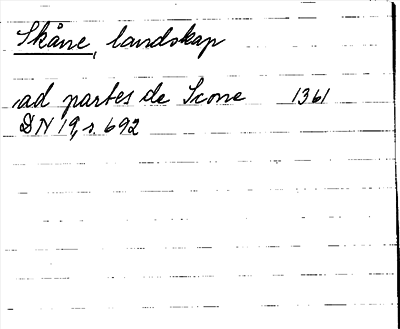 Skåne, landskap
ad partes de Scone 1361
DN 19, s. 692